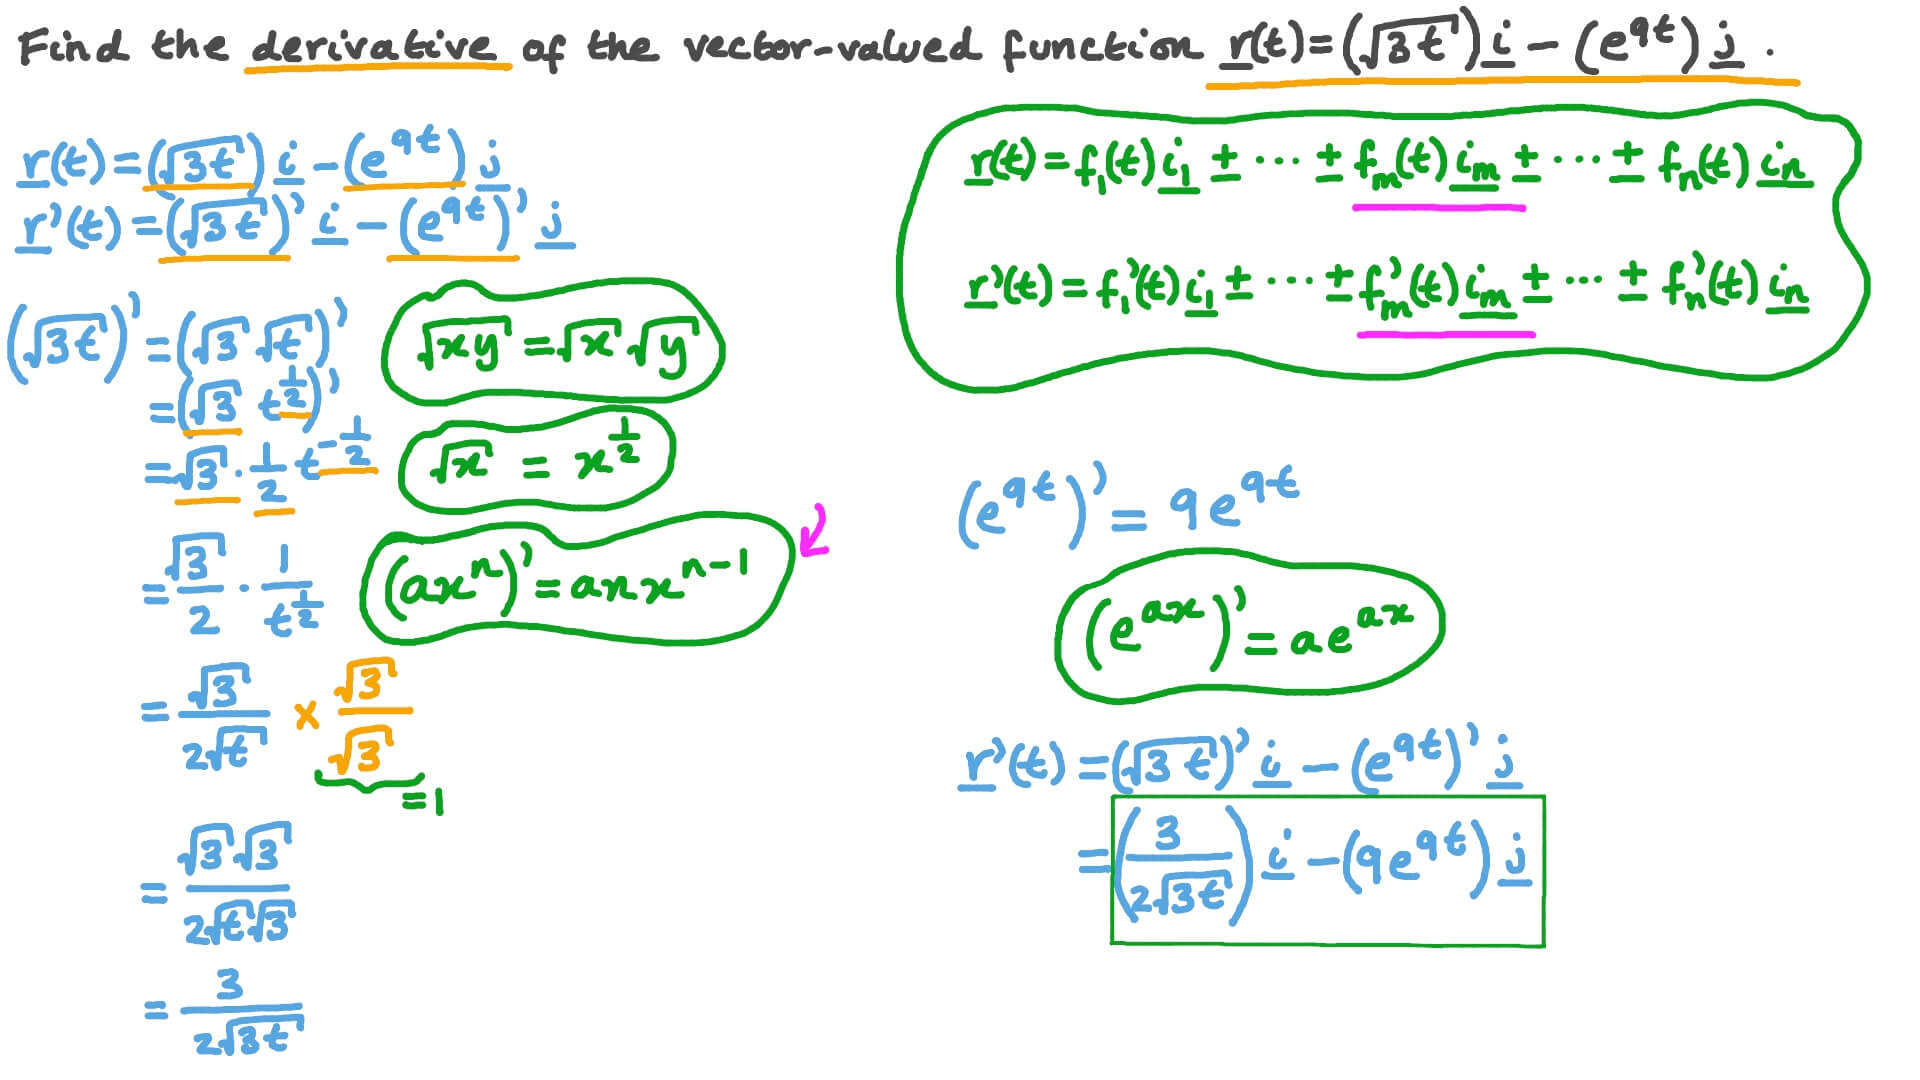 Find the derivative of the vector-valued function r(t)=(√3t)i-(e^9t)j.
r(t)=(√3t)i-(e^9t)j
r'(t)=(√3t)'i-(e^9t)'j
(√3t)'=(√3√t)'
=(√3 t^1/2)'
=√3·1/2 t^-1/2
=√3/2·1/t^1/2
=√3/2√t×√3/√3
=1
=√3√3/2√t√3
=3/2√3t
√xy=√x√y
√x=x^1/2
(ax^n)'=anx^n-1
r(t)=f₁(t)i₁±···±fm(t)im±···±fn(t)in
r'(t)=f₁'(t)i₁±···±fm'(t)im±···±fn'(t)in
(e^9t)'=9e^9t
(e^ax)'=ae^ax
r'(t)=(√3t)'i-(e^9t)'j
=(3/2√3t)i-(9e^9t)j